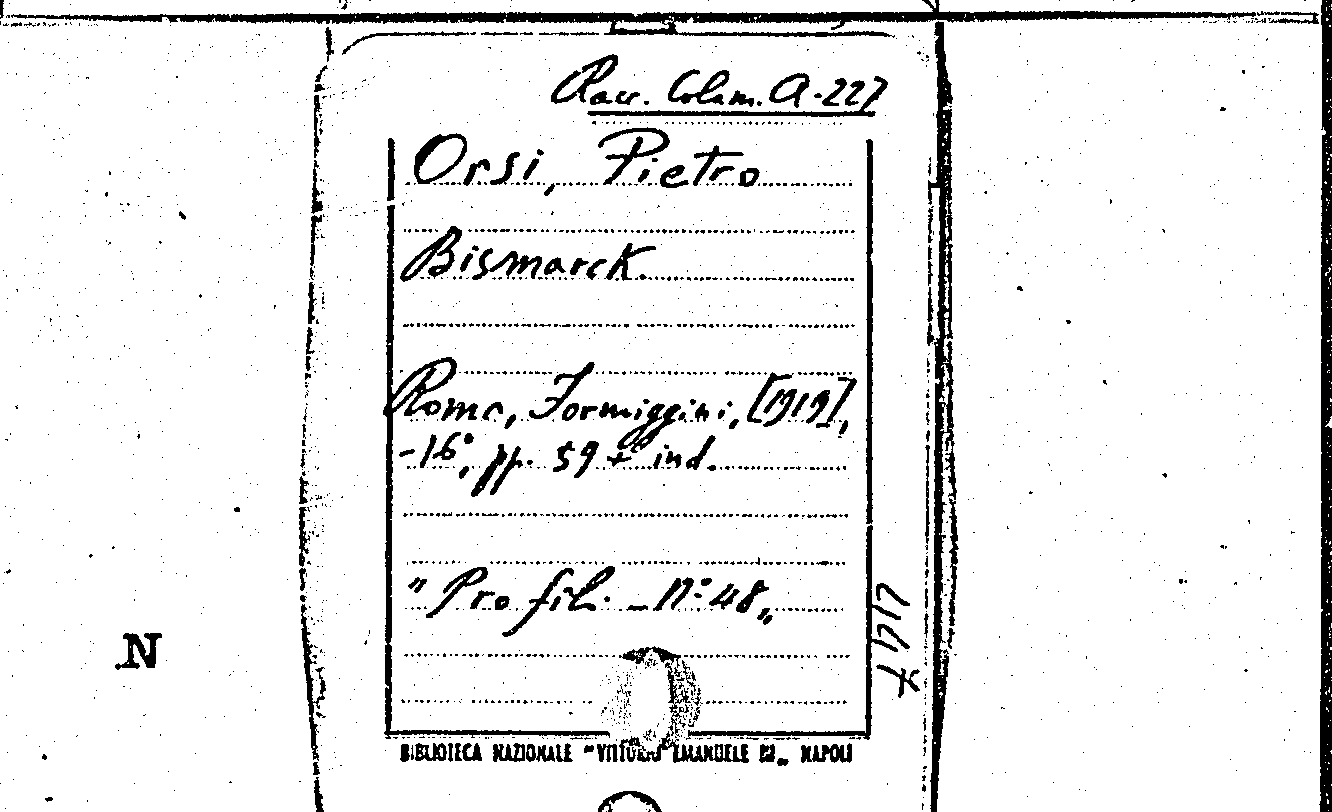 Racc. Colam. A-227
Orsi, Pietro
Bismarck.
Roma, Formiggini, [1919],
-16°, pp. 59 + ind.
"Profili - N° 48„
N
BIBLIOTECA NAZIONALE "VITTORIO EMANUELE III„ NAPOLI